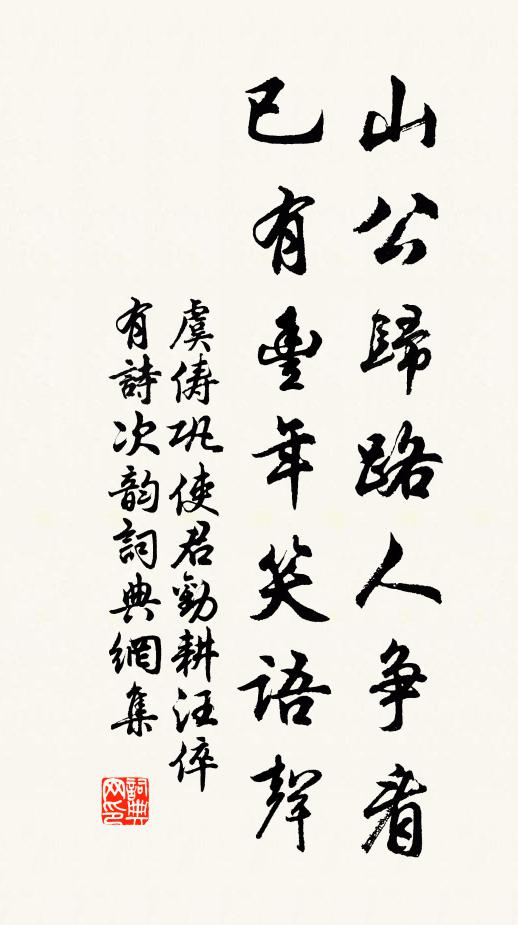 山公歸路人争看
已有豐年笑語聲
虞儔巩使君勸耕汪倅
有詩次韵詞典網集
詞典
网印